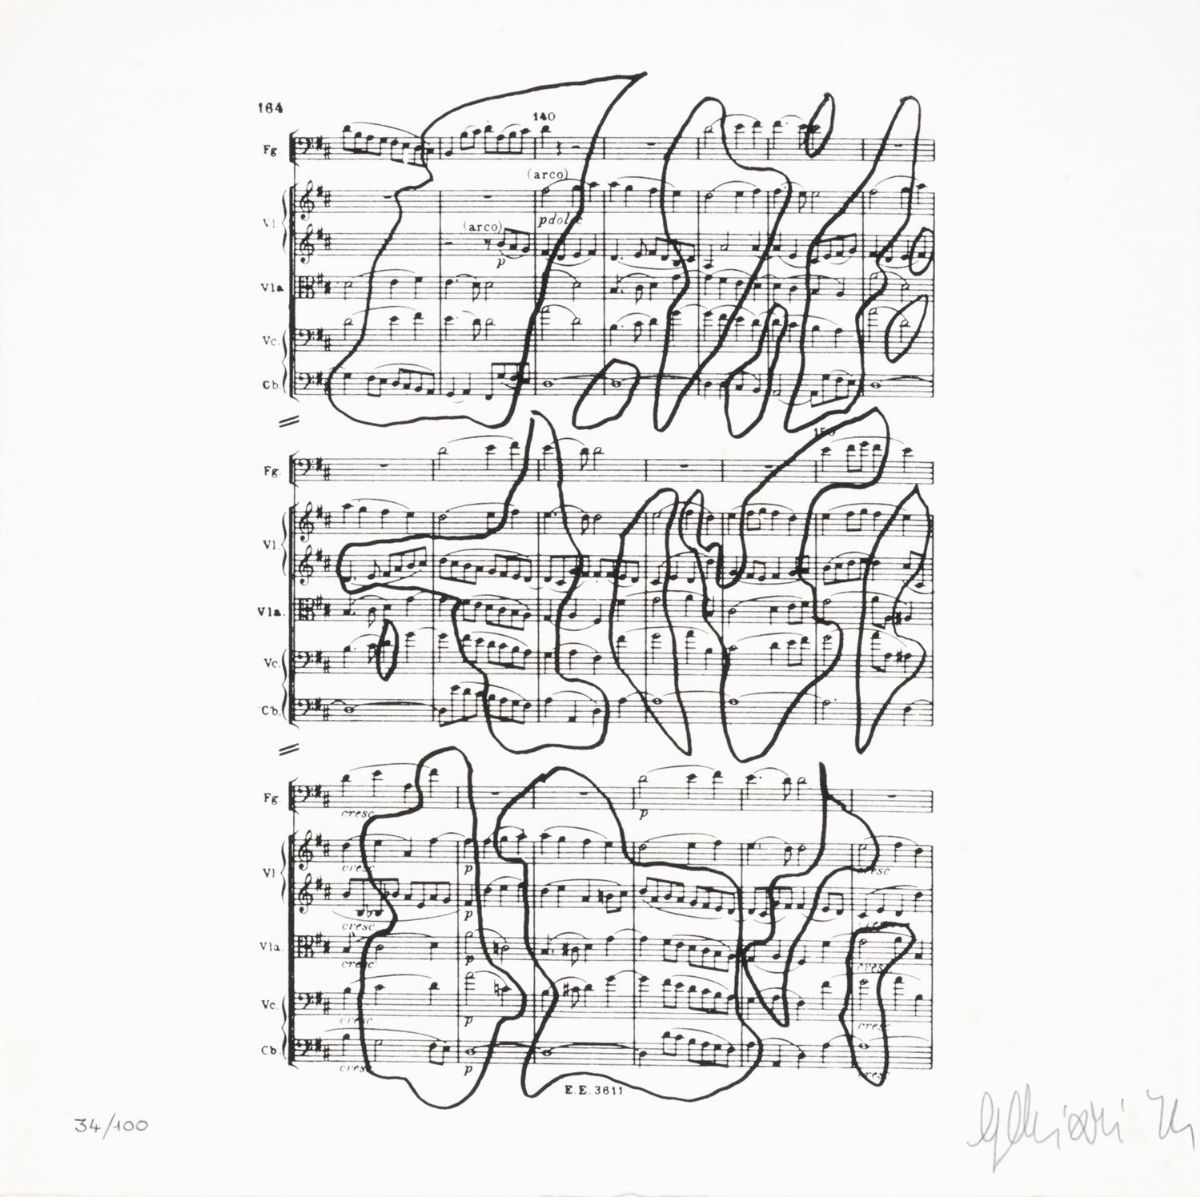 164
140
Fg.
(arco)
Vl.
p dolce
(arco)
p
Vla.
Vc.
Cb.
150
Fg.
Vl.
Vla.
Vc.
Cb.
Fg.
cresc
p
Vl.
cresc
p
cresc
cresc
p
Vla.
cresc
p
cresc
Vc.
cresc
p
cresc
Cb.
cresc
p
E.E. 3611
34/100
GChiari 74